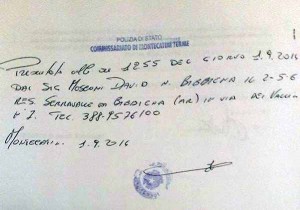 POLIZIA DI STATO
COMMISSARIATO DI MONTECATINI TERME
Presentata alle ore 1255 del giorno 1.9.2016
dal sig Mosconi David n. Bibbiena il 2-5-6
res. Serravalle di Bibbiena (AR) in via dei
N° Tel. 388.9576100
Montecatini 1.9.2016